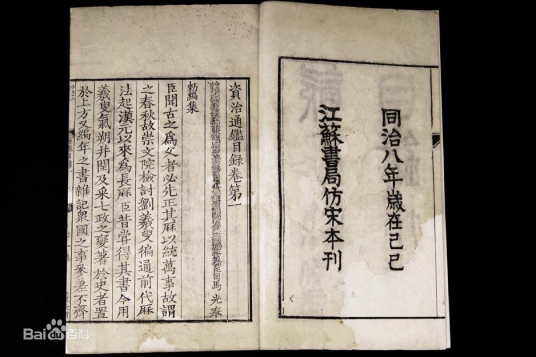 同治八年歲在己巳
江蘇書局仿宋本刊
資治通鑑目錄卷第一
司馬光奉
勑編集
臣聞古之為文者必先正其厤以統萬事故謂
之春秋故崇文院檢討劉羲叟徧通前代厤
法起漢元以來為長厤臣昔嘗得其書今用
羲叟氣朔并閏及采七政之變著於史者置
於上方又編年之書雜記衆國之事參差不齊
Baidu百科